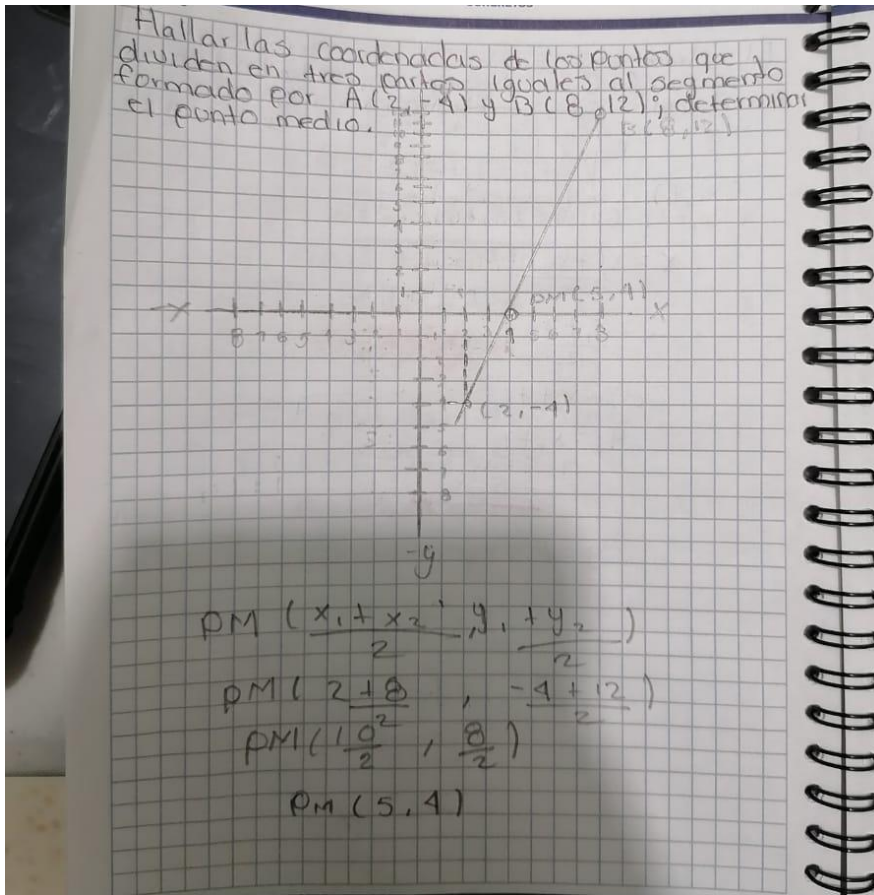 Hallar las coordenadas de los puntos que
dividen en tres partes iguales al segmento
formado por A(2,-4) y B(8,12); determinar
el punto medio.
B(8,12)
PM(5,4)
-x
x
8 7 6 5 4 3
(2,-4)
8
-y
PM (x₁ + x₂ / 2, y₁ + y₂ / 2)
PM( 2+8 / 2 , -4+12 / 2 )
PM(10/2 , 8/2)
PM (5,4)